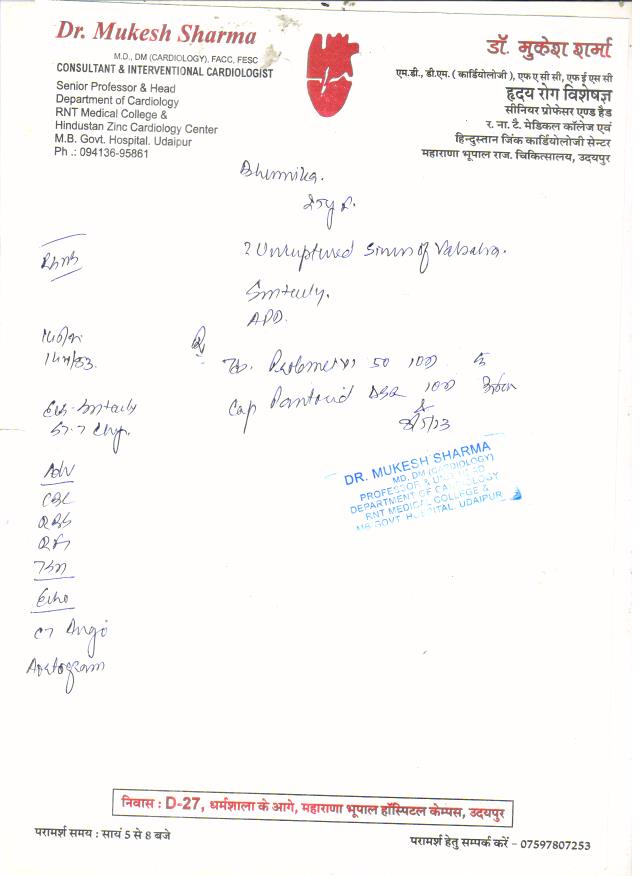 Dr. Mukesh Sharma
M.D., DM (CARDIOLOGY), FACC, FESC
CONSULTANT & INTERVENTIONAL CARDIOLOGIST
Senior Professor & Head
Department of Cardiology
RNT Medical College &
Hindustan Zinc Cardiology Center
M.B. Govt. Hospital. Udaipur
Ph .: 094136-95861
डॉ. मुकेश शर्मा
एम.डी., डी.एम. ( कार्डियोलोजी ), एफ ए सी सी, एफ ई एस सी
हृदय रोग विशेषज्ञ
सीनियर प्रोफेसर एण्ड हैड
र. ना. टै. मेडिकल कॉलेज एवं
हिन्दुस्तान जिंक कार्डियोलोजी सेन्टर
महाराणा भूपाल राज. चिकित्सालय, उदयपुर
Bhumika.
25y
? Unruptured Sinus of Valsalva.
APD.
50
Cap Pantocid DSR
Adv
CBC
RBS
RFT
TSH
Echo
CT Angio
Aortogram
DR. MUKESH SHARMA
MD, DM (CARDIOLOGY)
PROFESSOR &
DEPARTMENT OF CARDIOLOGY
RNT MEDICAL COLLEGE &
MB GOVT. HOSPITAL, UDAIPUR
निवास : D-27, धर्मशाला के आगे, महाराणा भूपाल हॉस्पिटल केम्पस, उदयपुर
परामर्श समय : सायं 5 से 8 बजे
परामर्श हेतु सम्पर्क करें - 07597807253